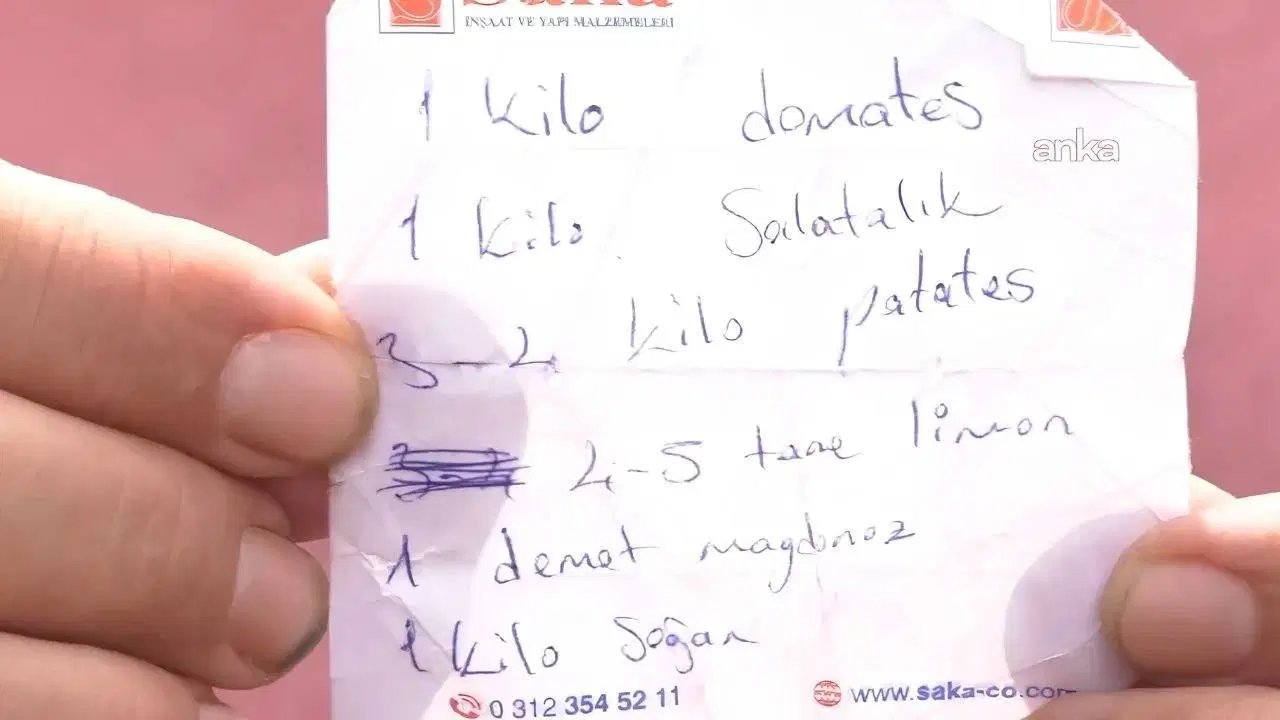 Saka
İNŞAAT VE YAPI MALZEMELERİ
1 Kilo domates
anka
1 Kilo Salatalık
3-4 Kilo patates
4-5 tane limon
1 demet magdonoz
1 Kilo Soğan
0 312 354 52 11
www.saka-co.com